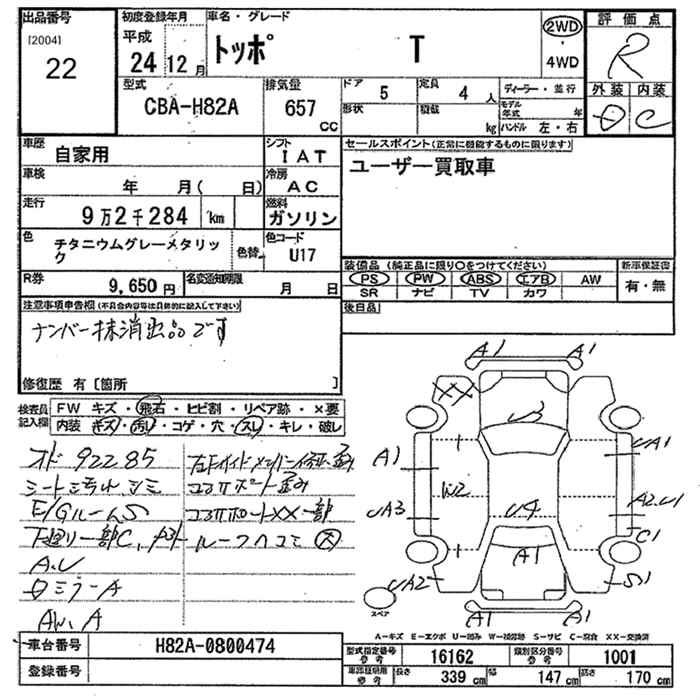 出品番号
[2004]
22
初度登録年月
平成
24 12 月
車名・グレード
トッポ T
2WD
・
4WD
評価点
R
外装 内装
D C
型式
CBA-H82A
排気量
657
CC
ドア 5
定員 4 人
形状
積載 kg
ディーラー・並行
モデル年式 年
ハンドル 左・右
車歴
自家用
シフト
IAT
セールスポイント(正常に機能するものに限ります)
ユーザー買取車
車検
年 月( 日)
冷房
AC
走行
9万2千284 km
燃料
ガソリン
色
チタニウムグレーメタリック
色替
色コード
U17
装備品(純正品に限り〇をつけてください)
PS PW ABS エアB AW
SR ナビ TV カワ
新車保証書
有・無
R券
9,650円
名変通知期限
月 日
後日品
注意事項申告欄(不具合内容等は具体的に記入して下さい)
ナンバー抹消出品です
修復歴 有〔箇所 〕
検査員記入欄
FW キズ・飛石・ヒビ割・リペア跡・×要
内装 キズ・汚レ・コゲ・穴・スレ・キレ・破レ
オド 92285
シート汚れ、シミ
E/GルームS
下廻り一部C、
A.U
ロミラーA
AW、A
コアサポート歪み
コアサポートXX一部
ルーフヘコミ 大
A1 A1
XX
U3
A1
UA1
W2
UA3
U4
A2.U1
C1
A1
UA2
S1
A1 A1
スペア
A-キズ E-エクボ U-凹み W-補修跡 S-サビ C-腐食 XX-交換済
車台番号
H82A-0800474
登録番号
型式指定番号
参考
16162
類別区分番号
参考
1001
車検証用
参考
長さ 339 cm
幅 147 cm
高さ 170 cm